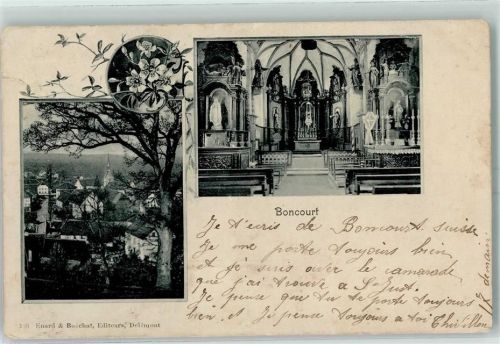 Boncourt
Je t'écris de Boncourt suisse
Je me porte toujours bien
et je suis avec le camarade
que j'ai trouvé a
Je pense que tu te porte toujours
bien et Je pense toujours a toi
Enard & Boéchat, Editeurs, Delémont